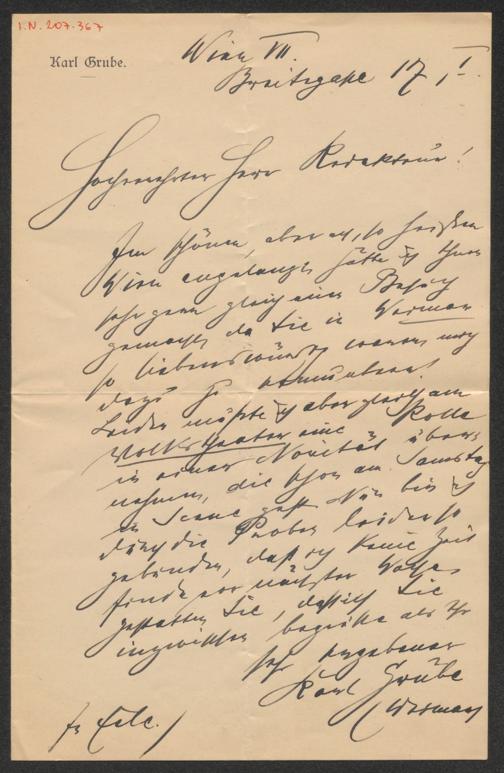 I.N. 207.367
Karl Grube.
Wien VII.
Breitegasse 17, I.
Hochverehrter Herr Redakteur!
Im schönen, aber ach, so heißen
Wien angelangt hätte ich Ihnen
sehr gern gleich einen Besuch
gemacht, da Sie in Weimar
so liebenswürdig waren mich
dazu zu
Leider mußte ich aber gleich am
Volkstheater eine Rolle
in einer Novität über-
nehmen, die schon am Samstag
in Scene geht. Nun bin ich
durch die Proben leider so
gebunden, daß ich keine Zeit
finde vor nächster Woche.
gestatten Sie, daß ich Sie
inzwischen begrüße als Ihr
sehr ergebener
Karl Grube
(Weimar)